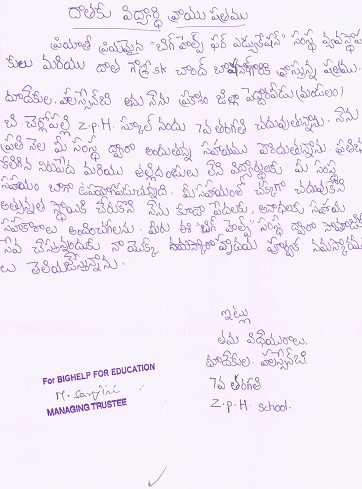 దాతకు విద్యార్థి వ్రాయు పత్రము
ప్రియాతి ప్రియమైన "బిగ్ హెల్ప్ ఫర్ ఎడ్యుకేషన్" సంస్థ వ్యవస్థాప
కులు మరియు దాత sk చాంద్ వ్రాస్తున్న పత్రము.
దూదేకుల. హుస్సేన్ బి అను నేను ప్రకాశం జిల్లా పెద్దారవీడు (మండలం)
బి చెర్లోపల్లి Z.P.H. స్కూల్ నందు 7వ తరగతి చదువుతున్నాను. నేను
ప్రతి నెల మీ సంస్థ ద్వారా అందుతున్న సహాయము పొందుతున్నాను. ప్రతిభ
కలిగిన నిరుపేద మరియు తల్లిదండ్రులు లేని విద్యార్థులకు మీ సంస్థ
సహాయం బాగా ఉపయోగపడుచున్నది. మీ సహాయంతో చక్కగా చదువుకొని
అత్యున్నత స్థాయికి చేరుకొని నేను కూడా పేదలకు, అనాధలకు సహాయ
సహకారాలు అందించగలను. మీరు ఈ "బిగ్ హెల్ప్" సంస్థ ద్వారా
సేవ చేస్తున్నందుకు నా యొక్క హృదయ పూర్వక నమస్కారము
లు తెలియజేస్తున్నాను.
ఇట్లు
తమ విధేయురాలు.
దూదేకుల హుస్సేన్ బి.
7వ తరగతి
Z.P.H. school.
For BIGHELP FOR EDUCATION
MANAGING TRUSTEE